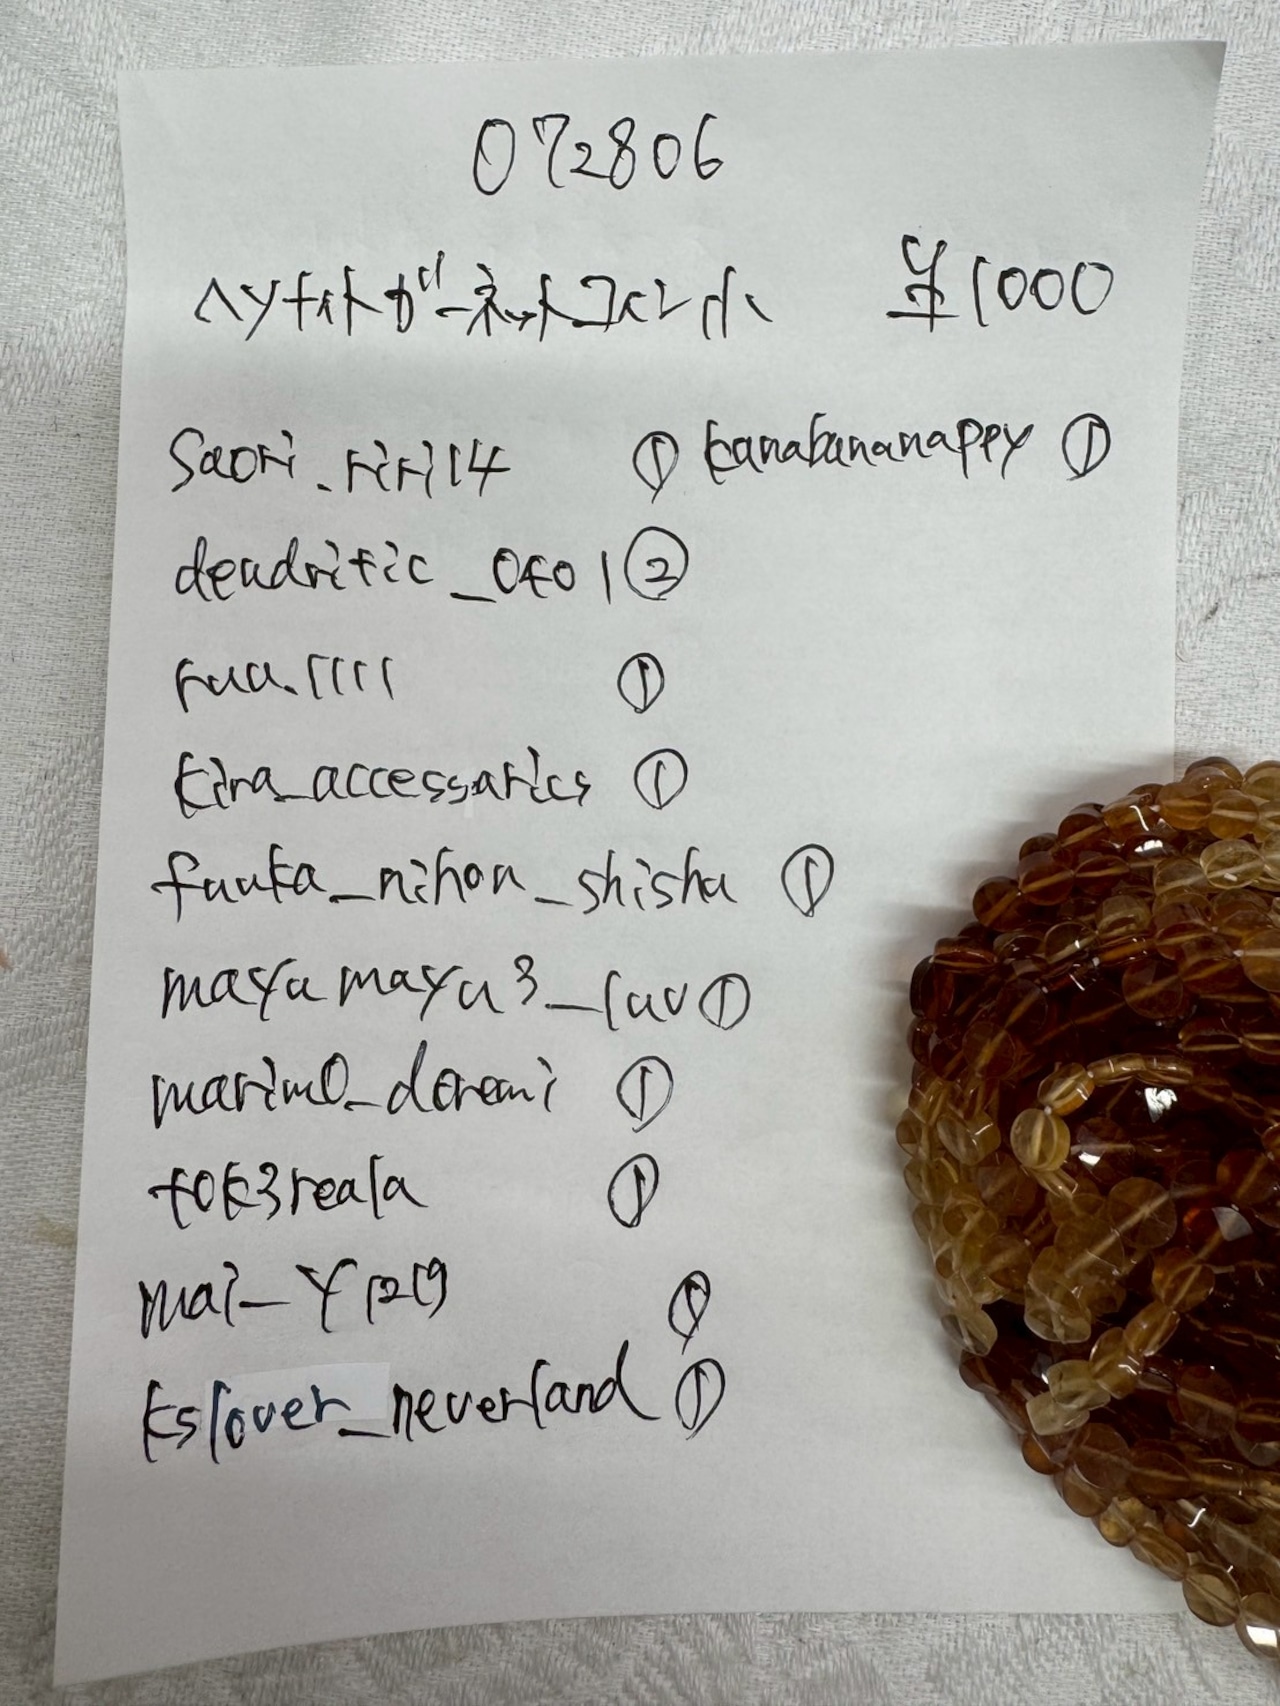 072806
ヘソナイトガーネットコイン小 ¥1000
Saori_riri14 ① kanabananappy ①
dendritic_0401 ②
ruu.1111 ①
kira_accessaries ①
fuuka_nihon_shisha ①
mayumayu3_luv ①
marim0_doremi ①
tok3reala ①
mai_y1219 ①
kslover_neverland ①